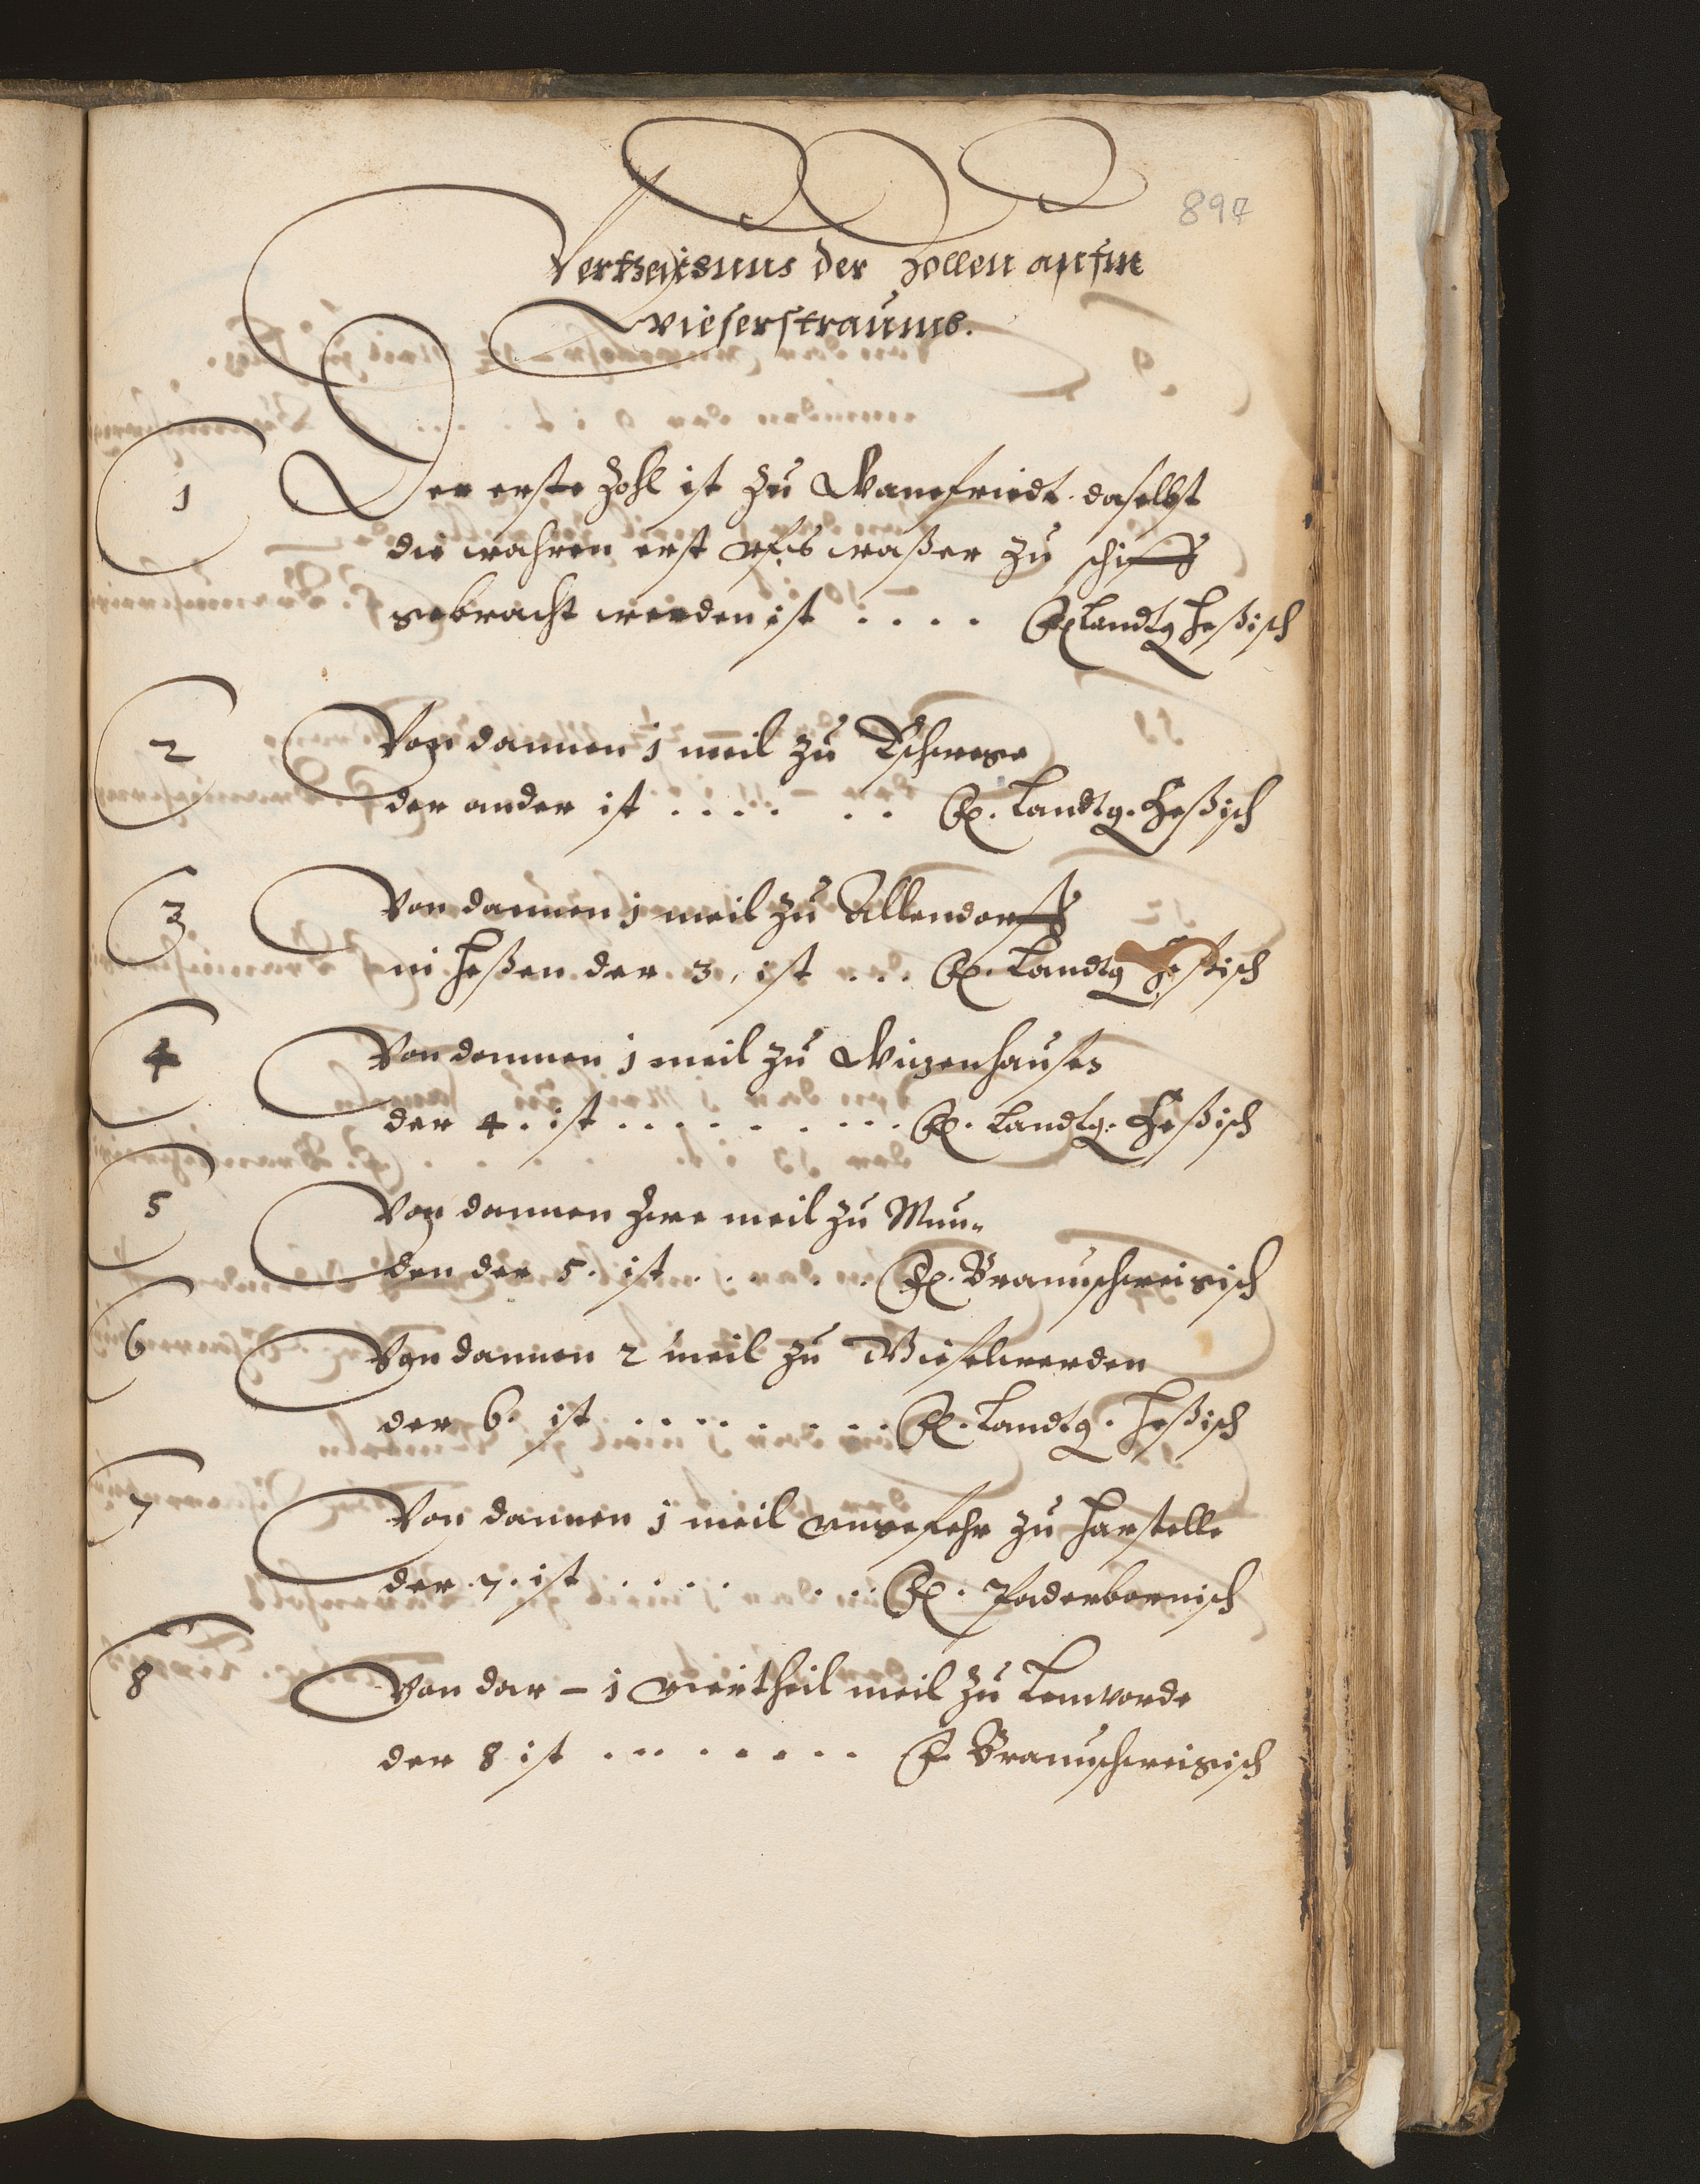 897
Vertzeichnus der Zollen aufm
Wieserstraumb.
1 Der erste Zohl ist zu Wanefriedt. daselbst
die wahren erst ufs waßer zu schiff
gebracht werden ist .... F. Landtg Heßisch
2 Von dannen 1 meil zu Eschwege
der ander ist ...... F. Landtg. Heßisch
3 Von dannen 1 meil zu Allendorff
in Heßen der 3. ist ... F. Landtg Heßisch
4 Von dannen 1 meil zu Witzenhausen
der 4. ist ......... F. Landtg. Heßisch
5 Von dannen zwe meil zu Mun-
den der 5. ist ...... F. Braunschweigisch
6 Von dannen 2 meil zu Wieselwerden
der 6. ist ......... F. Landtg. Heßisch
7 Von dannen 1 meil ungefehr zu Harstelle
der 7. ist ....... F. Paderbornisch
8 Von dar - 1 viertheil meil zu Lemvorde
der 8 ist ........ F. Braunschweigisch